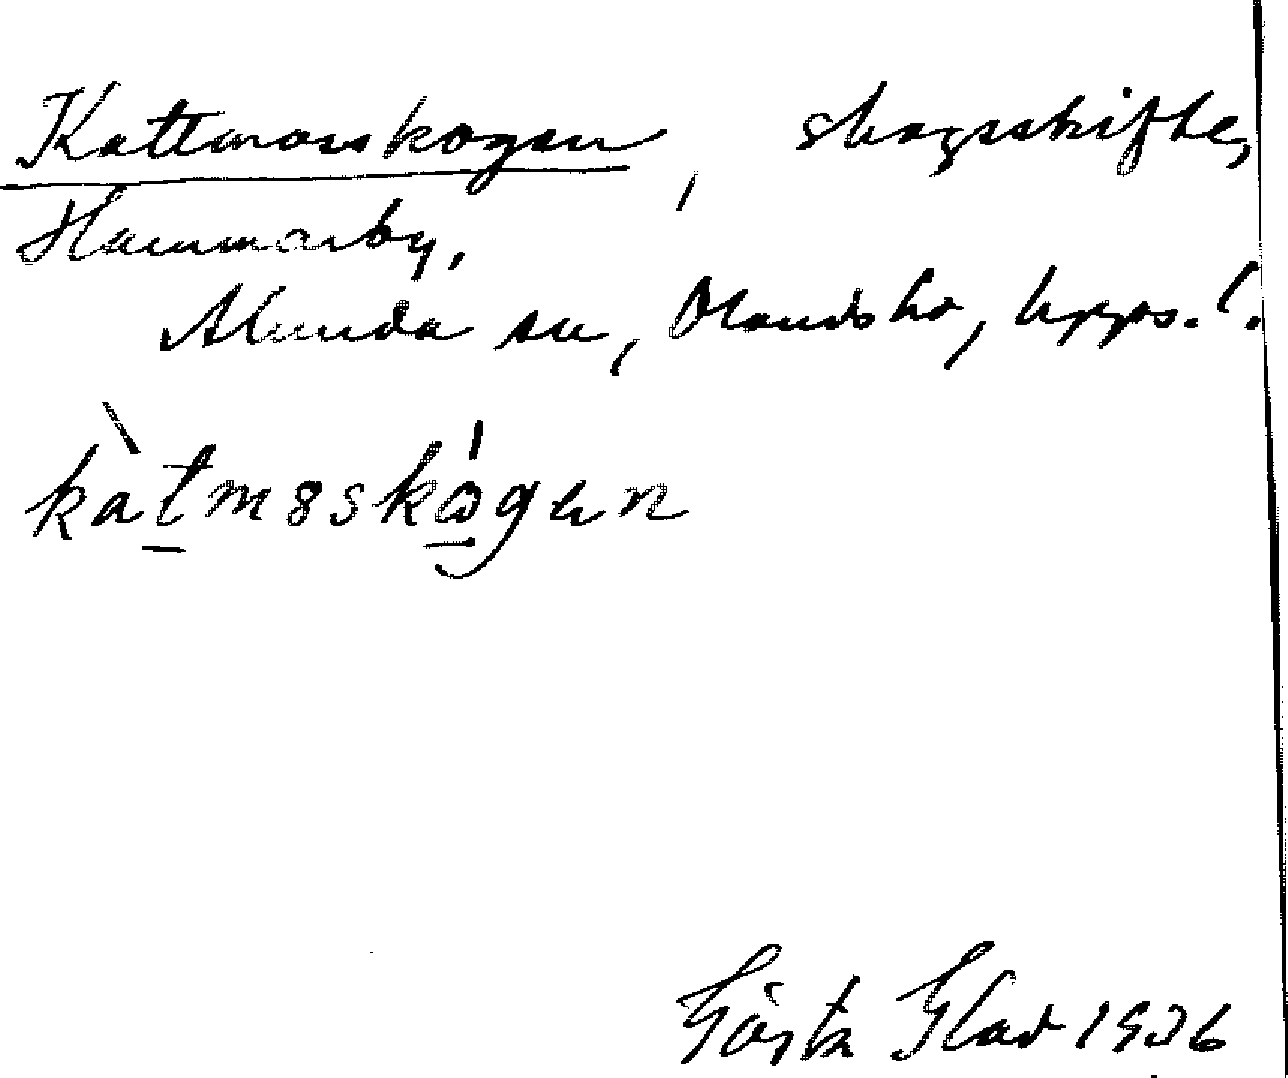 Kattmosskogen, skogsskifte,
Hammarby,
Alunda sn, Olands hd, Upps. l.
Gösta Glad 1936